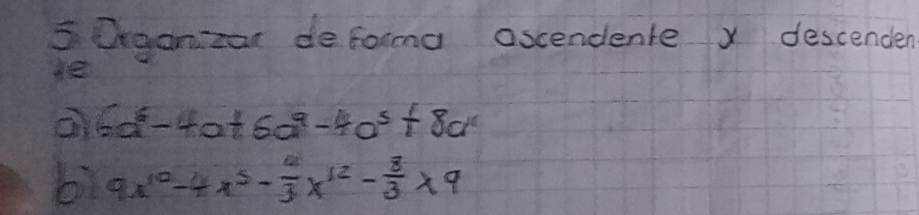 5. Organizar de forma ascendente y descenden
te
a) 6a⁶ - 4a + 6a⁹ - 4a⁵ + 8a
b) 9x¹⁰ - 4x⁵ - x¹² - 8/3 x9